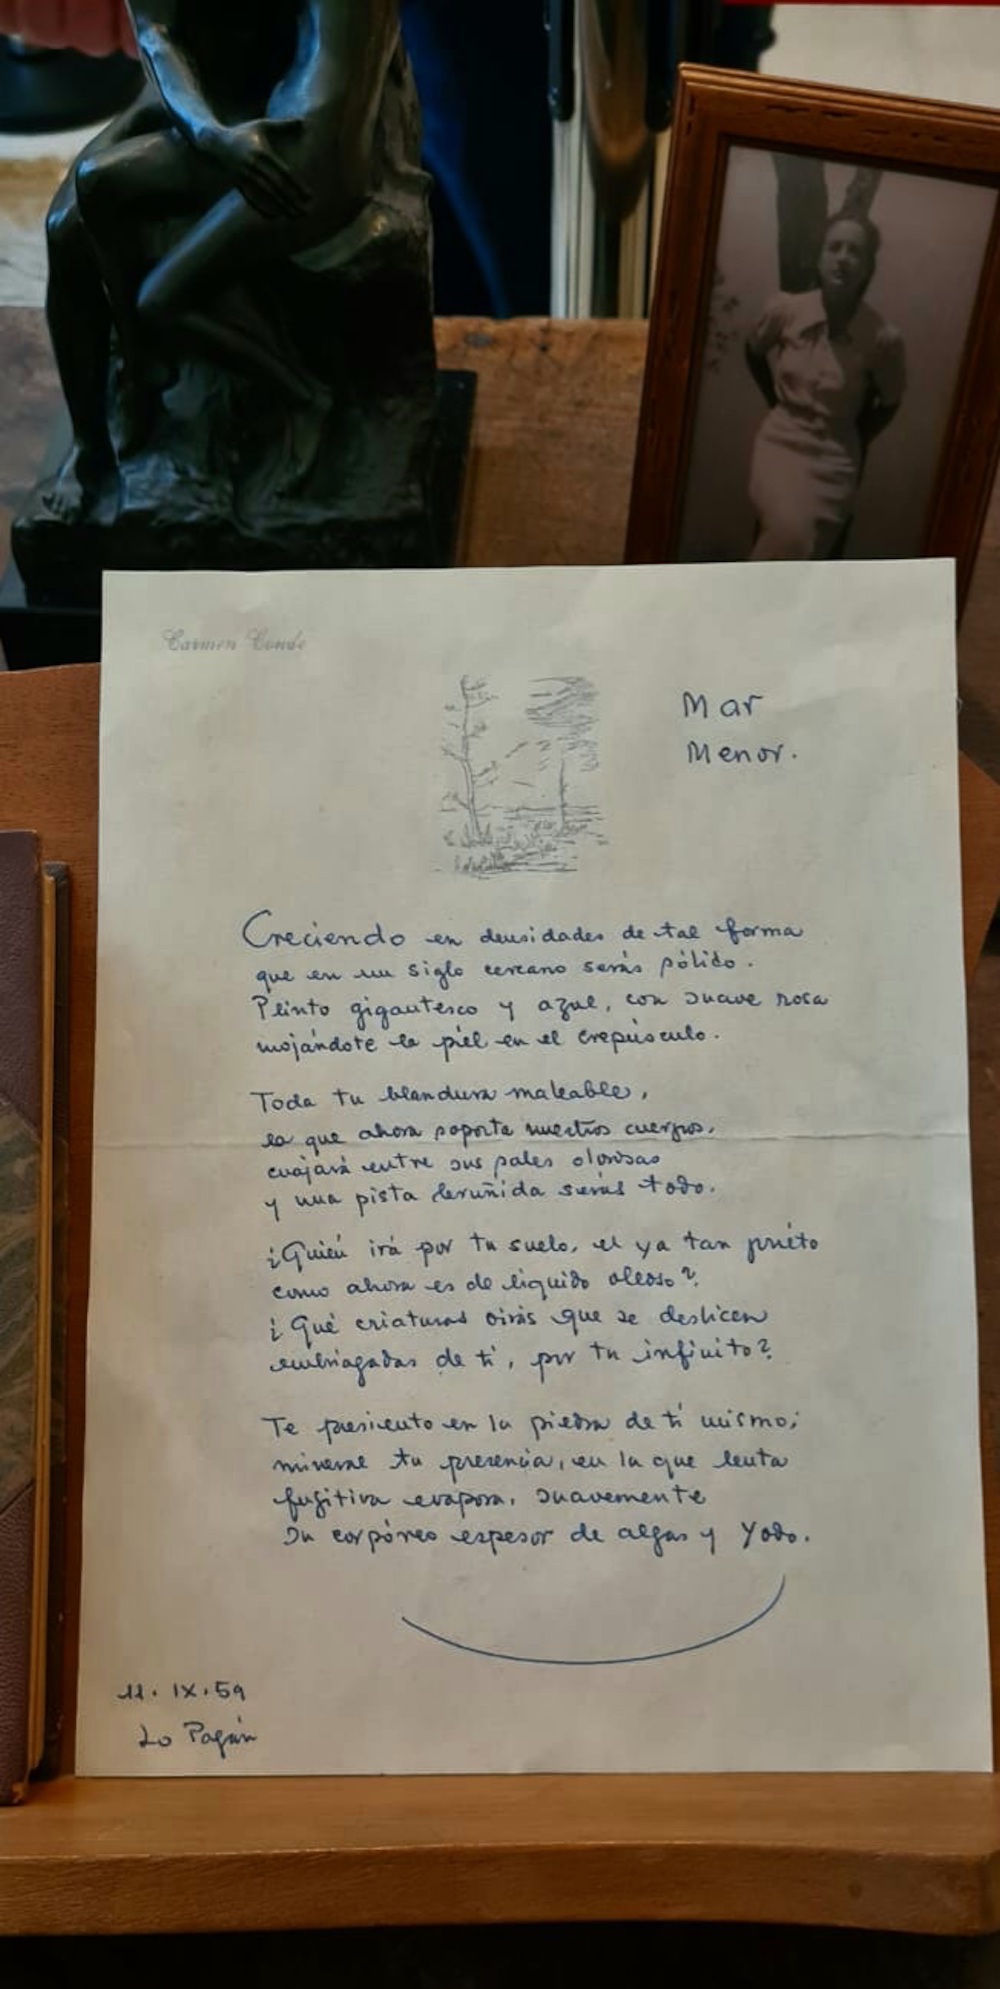 Carmen Conde
Mar
Menor.
Creciendo en densidades de tal forma
que en un siglo cercano serás pólido.
Plinto gigantesco y azul, con suave rosa
mojándote la piel en el crepúsculo.
Toda tu blandura maleable,
la que ahora soporta nuestros cuerpos,
cuajará entre sus sales olorosas
y una pista bruñida serás todo.
¿Quién irá por tu suelo, el ya tan prieto
como ahora es de líquido oleoso?
¿Qué criaturas oirás que se deslicen
embriagadas de ti, por tu infinito?
Te presiento en la piedra de ti mismo;
mineral tu presencia, en la que lenta
fugitiva evapora, suavemente
su corpóreo espesor de algas y yodo.
11. IX. 59
Lo Pagán